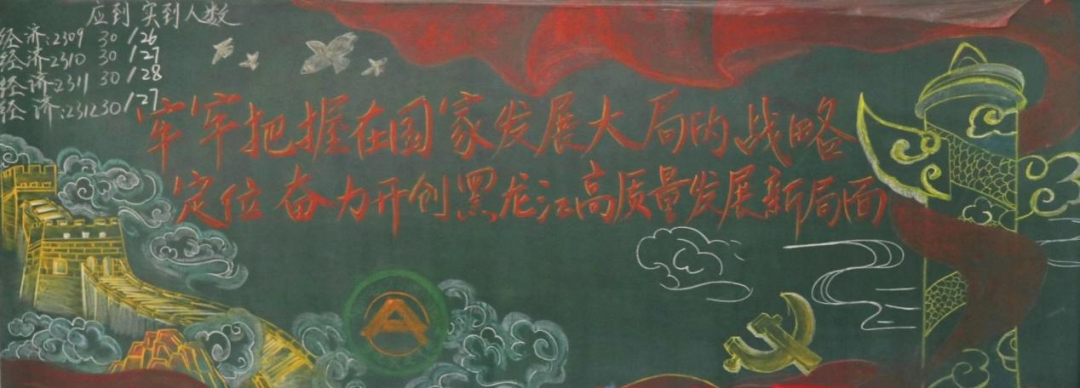 应到 实到人数
经济:2309 30/26
经济:2310 30/27
经济:2311 30/28
经济:2312 30/27
牢牢把握在国家发展大局的战略
定位 奋力开创黑龙江高质量发展新局面
A